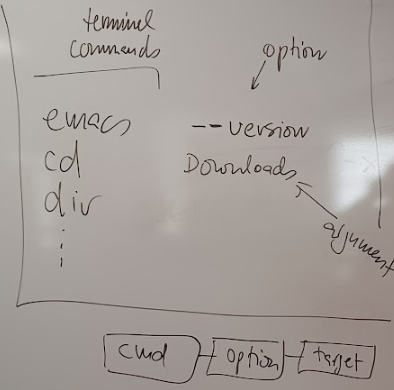 terminal
commands
option
emacs --version
cd Downloads
dir
argument
cmd option target